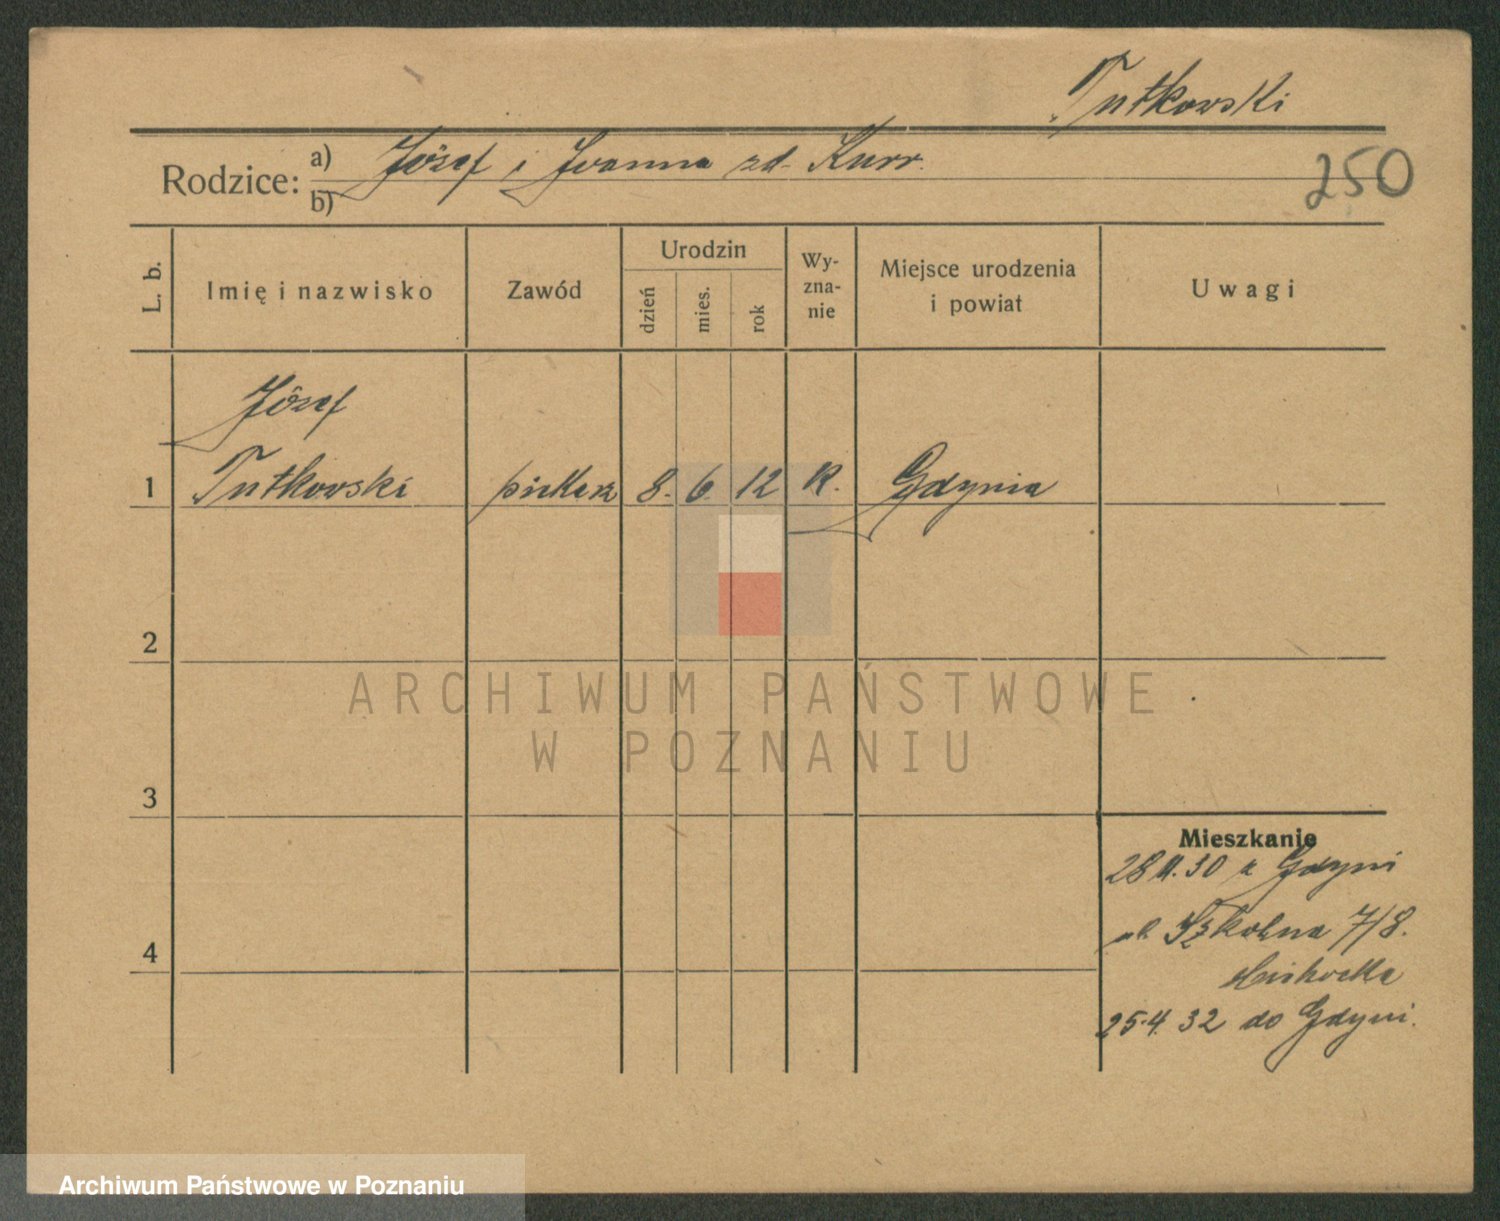 Tutkowski
Rodzice: a) Józef i Joanna zd. Kurr.
b)
250
L. b.
Imię i nazwisko
Zawód
Urodzin
dzień
mies.
rok
Wy-
zna-
nie
Miejsce urodzenia
i powiat
Uwagi
Józef
1 Tutkowski piekarz 8. 6. 12 R. Gdynia
2
ARCHIWUM PAŃSTWOWE
W POZNANIU
3
Mieszkanie
28 11. 30 z Gdyni
ul. Szkolna 7/8.
4
25.4. 32 do Gdyni.
Archiwum Państwowe w Poznaniu